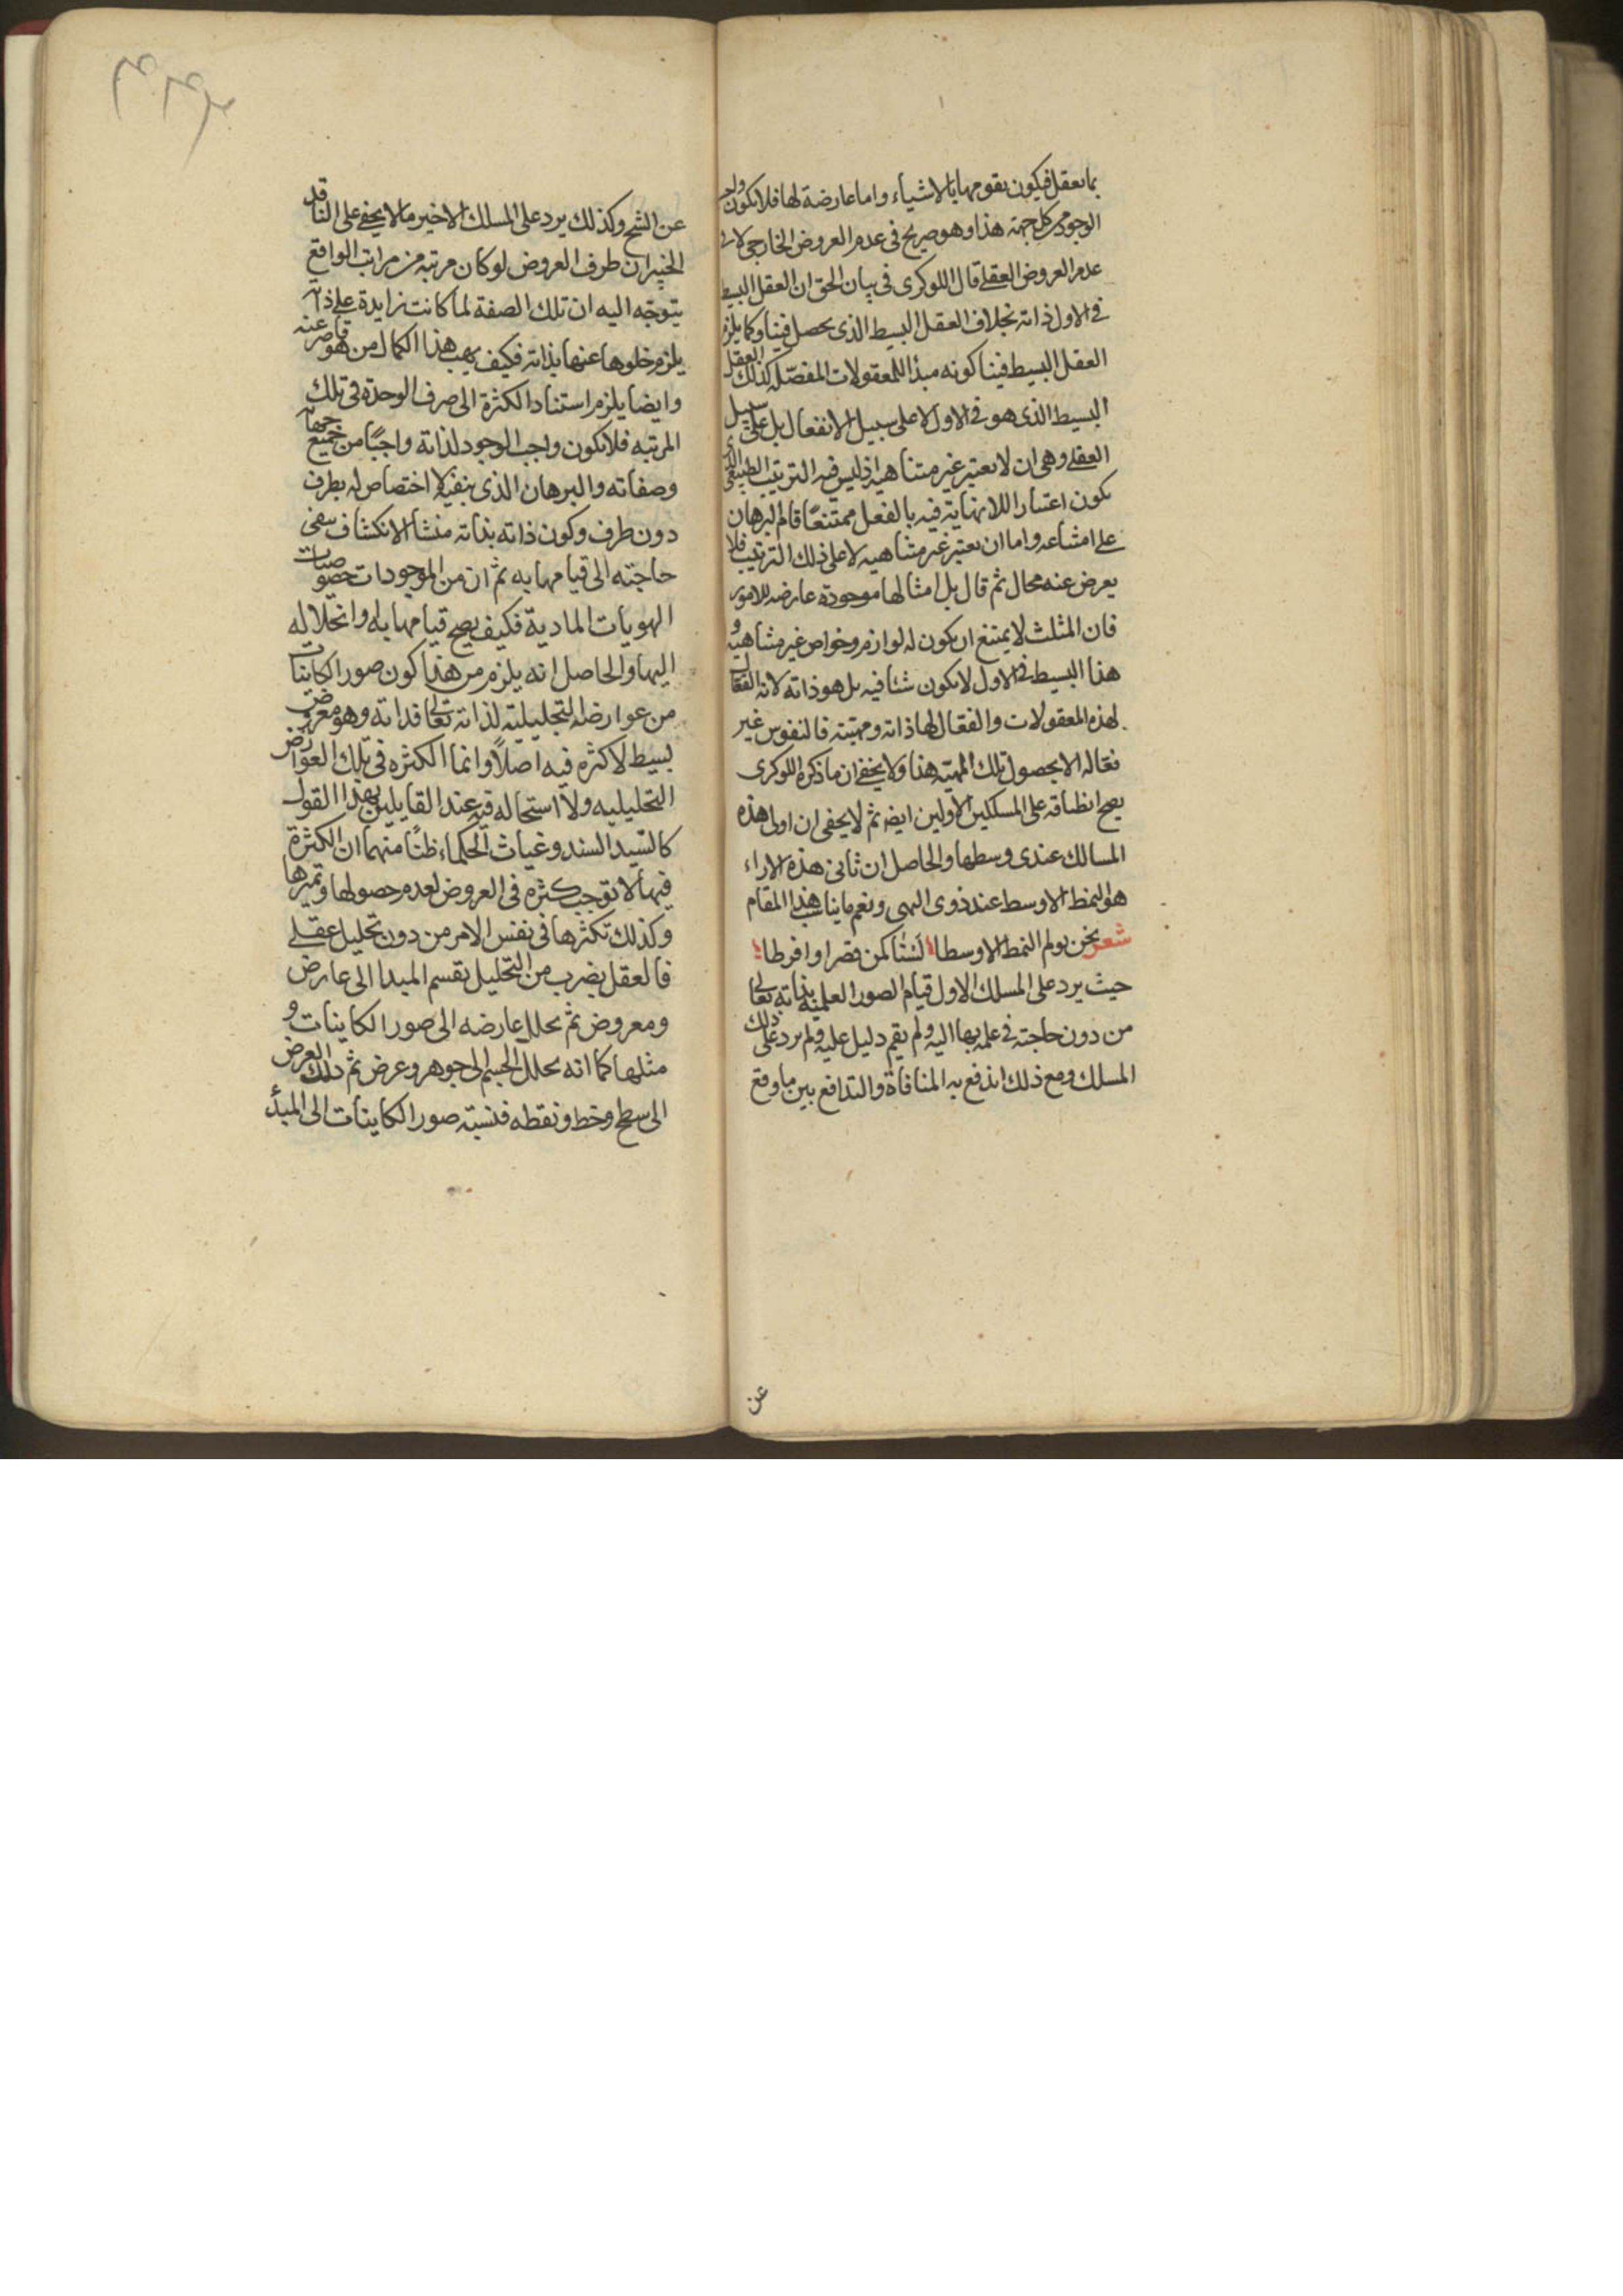 بما يعقل فيكون يقومها بالاشياء واما عارضة لها فلا يكون واجب
الوجود من كل جهة هذا وهو صريح فى عدم العروض الخارجى لا فى
عدم العروض العقلى قال اللوكرى فى بيان الحق ان العقل البسيط
فى الاول ذاته بخلاف العقل البسيط الذى يحصل فينا وكما يلزم
العقل البسيط فينا كونه مبدأ للمعقولات المفصله كذلك العقل
البسيط الذى هو فى الاول لا على سبيل الانفعال بل على سبيل
العقلى وهى ان لا يعتبر غير متناهية اذ ليس فيه الترتيب الطبيعى الذى
يكون اعتبار اللانهاية فيه بالفعل ممتنعًا قام البرهان
على امتناعه واما ان يعتبر غير متناهيه لا على ذلك الترتيب فلا
يعرض عنه محال ثم قال بل امثالها موجودة عارضه للامور
فان المثلث لا يمتنع ان يكون له لوازم وخواص غير متناهية و
هذا البسيط فى الاول لا يكون شئا فيه بل هو ذاته لانه الفعال
لهذه المعقولات والفعال لها ذاته ومهيته فالنفوس غير
فعاله الا بحصول تلك المهيته هذا ولا يخفى ان ما ذكره اللوكرى
يصح انطباقه على المسلكين الاولين ايضه ثم لا يخفى ان اولى هذه
المسالك عندى وسطها والحاصل ان ثانى هذه الاراء
هو النمط الاوسط عند ذوى النهى ونعم ما يناسب هذا المقام
شعر نحن يولم النمط الاوسطا لسنا كمن قصر او افرطا
حيث يرد على المسلك الاول قيام الصور العلميه بذاته تعالى
من دون حاجته فى علمه بها اليه ولم يقم دليل عليه ولم يرد على ذلك
المسلك ومع ذلك اندفع به المنافاة والتدافع بين ما وقع
عن
عن الشيخ وكذلك يرد على المسلك الاخير ما لا يخفى على الناقد
الخبير ان طرف العروض لو كان مرتبه من مراتب الواقع
يتوجه اليه ان تلك الصفة لما كانت زايدة على ذاته
يلزم خلوها عنها بذاته فكيف يهب هذا الكمال من هو قاصر عنه
وايضا يلزم استناد الكثرة الى صرف الوحدة فى تلك
المرتبه فلا يكون واجب الوجود لذاته واجبًا من جميع جهاته
وصفاته والبرهان الذى ينفيه لا اختصاص له بطرف
دون طرف وكون ذاته بذاته منشأ الانكشاف ينفى
حاجته الى قيامها به ثم ان من الموجودات خصوصيات
الهويات المادية فكيف يصح قيامها به وانحلاله
اليها والحاصل انه يلزم من هذا كون صور الكاينات
من عوارضه التحليلية لذاته تعالى فذاته وهو معروض
بسيط لا كثره فيه اصلًا وانما الكثره فى تلك العوارض
التحليليه ولا استحاله فيه عند القايلين بهذا القول
كالسيد السند وغياث الحكماء ظنًا منهما ان الكثرة
فيها لا توجب كثره فى العروض لعدم حصولها وتميزها
وكذلك تكثرها فى نفس الامر من دون تحليل عقلى
فالعقل بضرب من التحليل يقسم المبدا الى عارض
ومعروض ثم يحلل عارضه الى صور الكاينات و
مثلها كما انه يحلل الجسم الى جوهر وعرض ثم ذلك العرض
الى سطح وخط ونقطه فنسبته صور الكاينات الى المبدأ